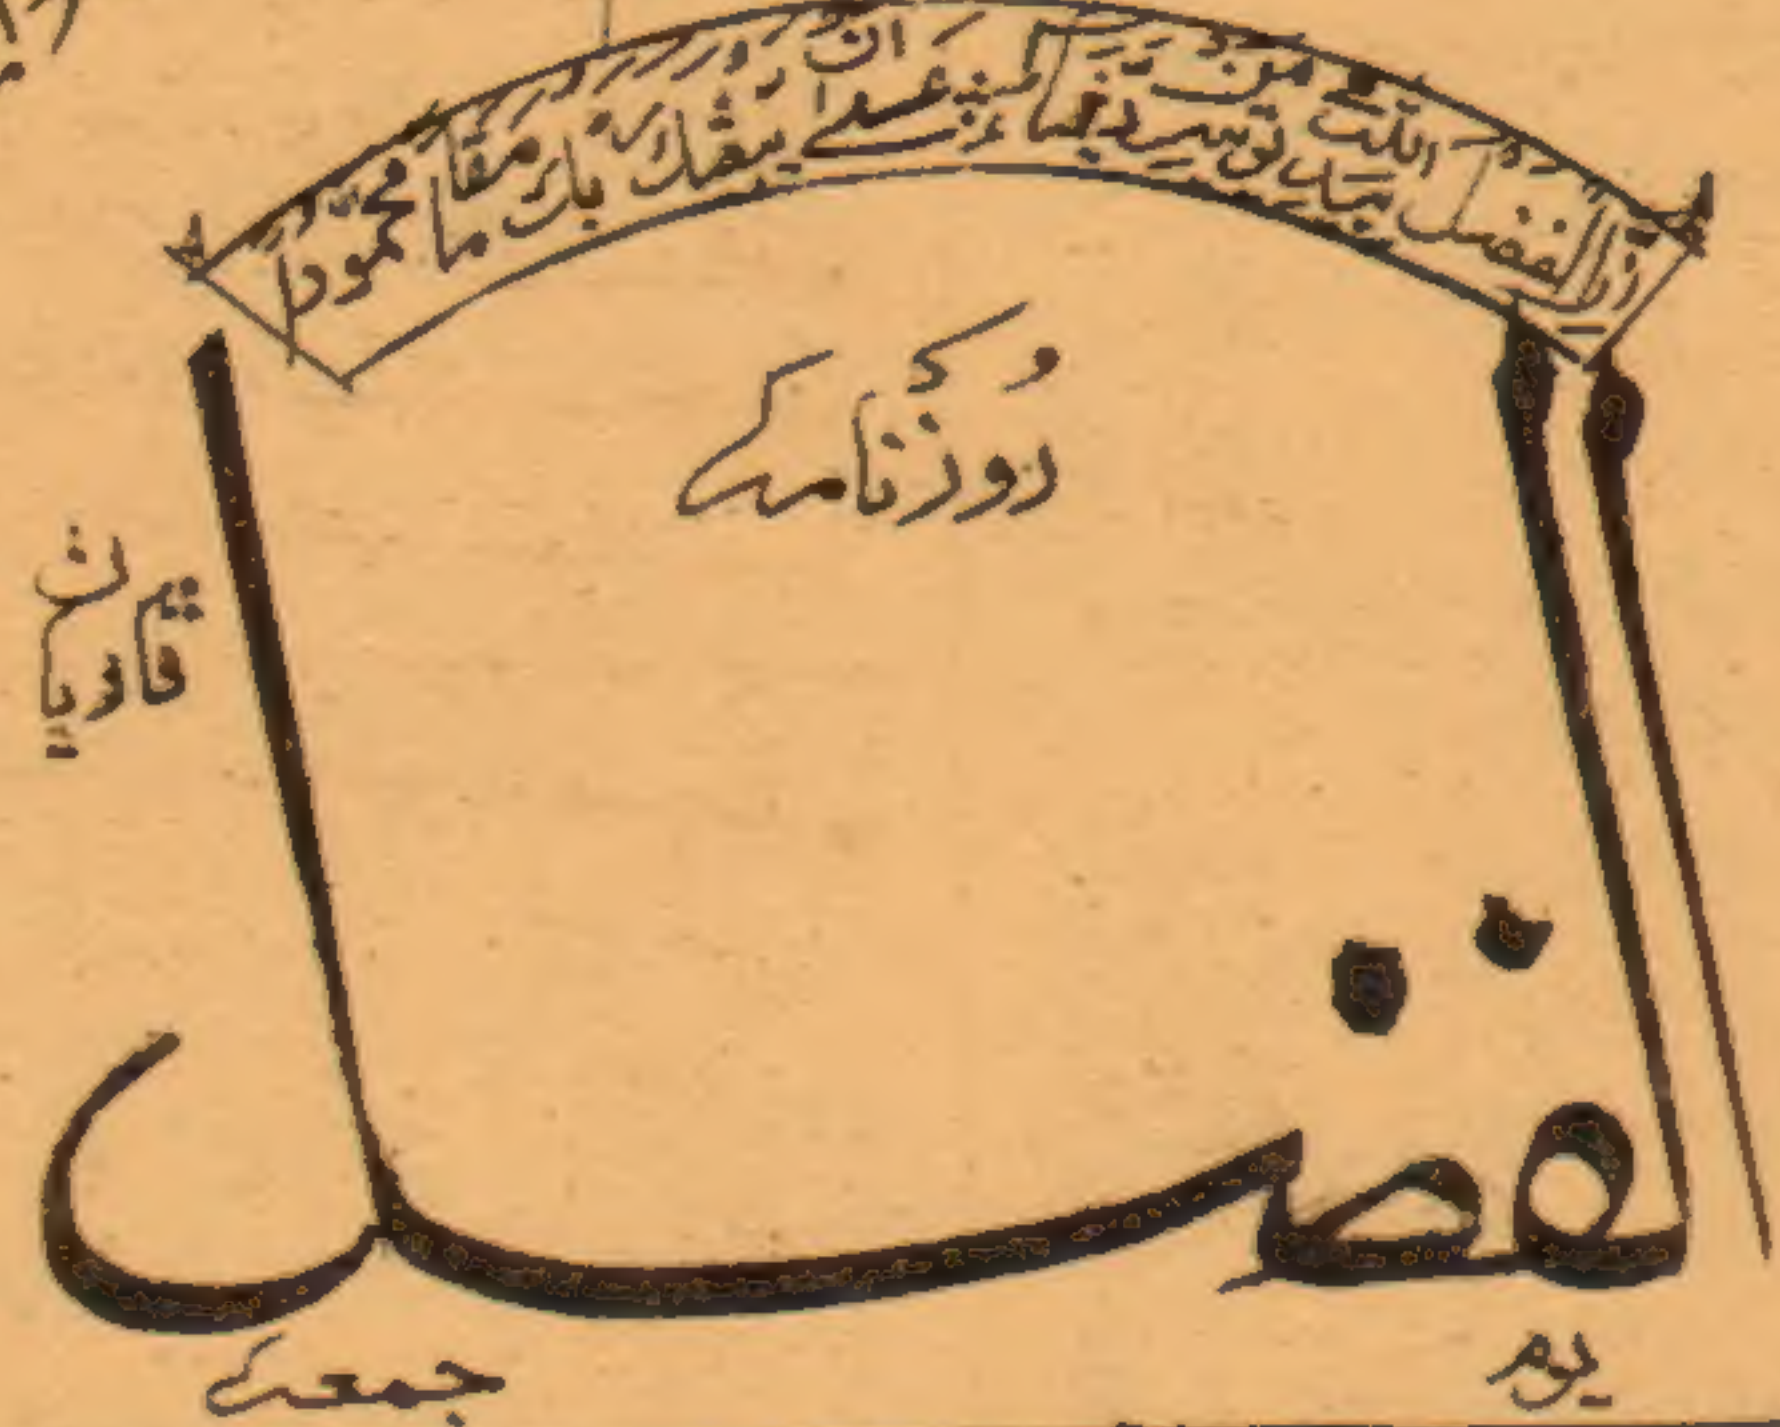 ان الفضل بيد الله يؤتيه من يشاء عسى ان يبعثك ربك مقاما محمودا
روزنامہ
قادیان
الفضل
یوم جمعہ